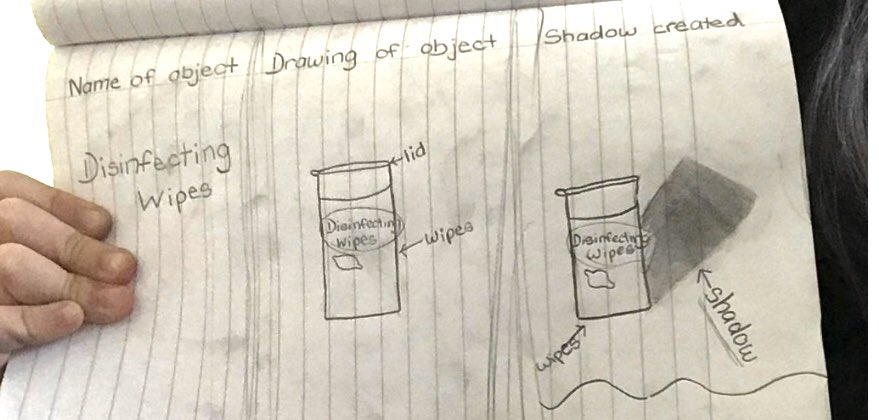 Name of object
Drawing of object
Shadow created
Disinfecting
Wipes
lid
Disinfecting
wipes
wipes
Disinfecting
wipes
wipes
shadow